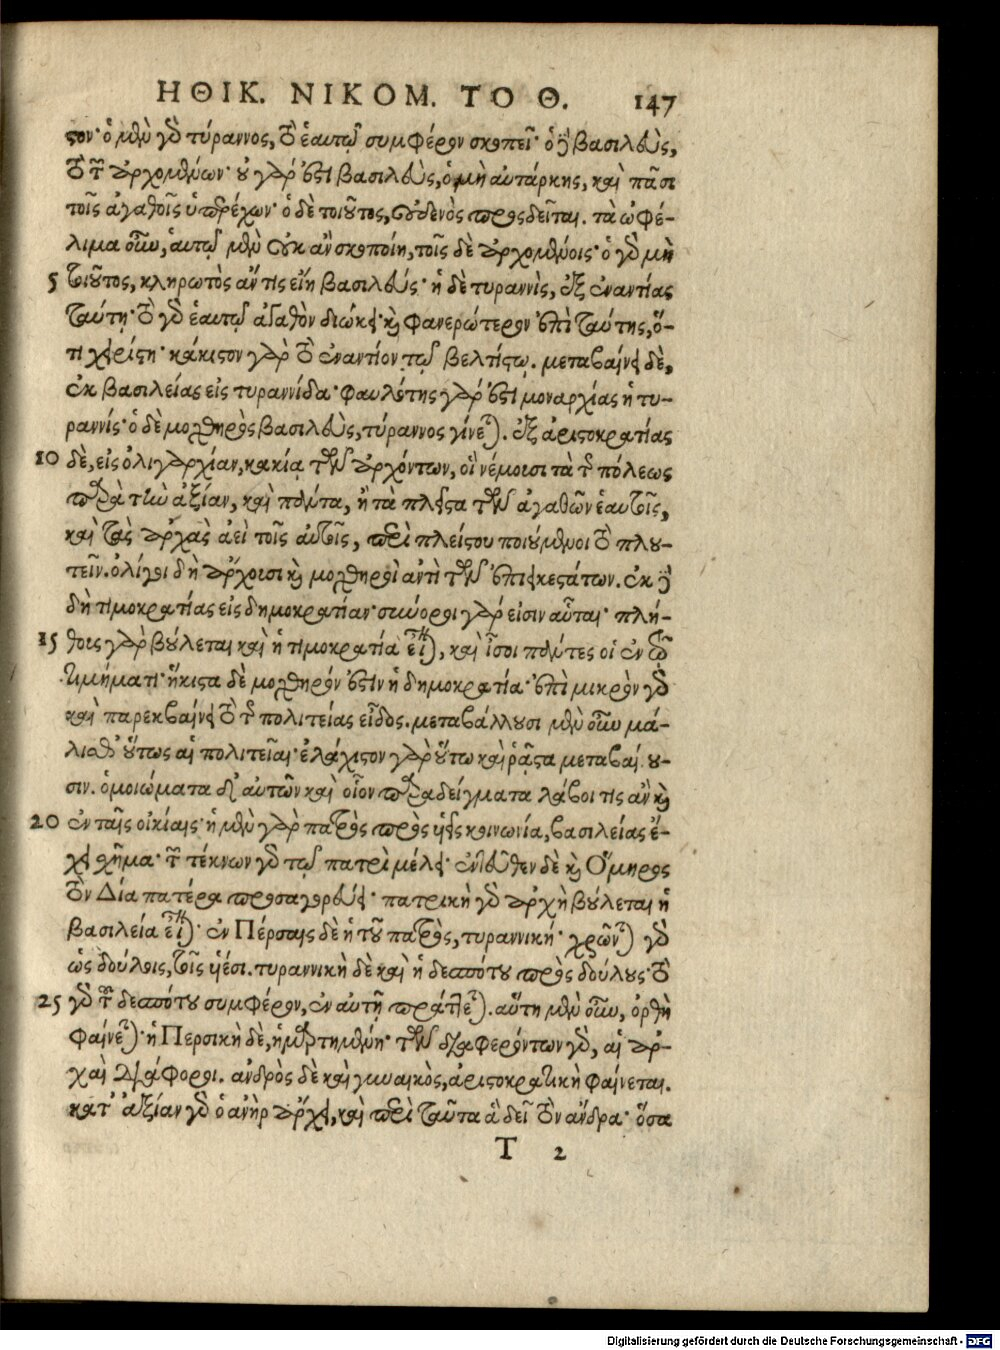 ΗΘΙΚ. ΝΙΚΟΜ. ΤΟ Θ. 147
τον· ὁ μὲν γὸ τύραννος, τὸ ἑαυτῷ συμφέρον σκοπεῖ· ὁ δὲ βασιλεὺς,
τὸ τῶν ἀρχομένων· οὐ γάρ ἐστι βασιλεὺς, ὁ μὴ αὐτάρκης, καὶ πᾶσι
τοῖς ἀγαθοῖς ὑπερέχων· ὁ δὲ τοιοῦτος, οὐδενὸς προςδεῖται. τὰ ὠφέ-
λιμα οὖν, ἑαυτῷ μὲν οὐκ ἂν σκοποίη, τοῖς δὲ ἀρχομένοις· ὁ γὸ μὴ
5 τοιοῦτος, κληρωτὸς ἄν τις εἴη βασιλεύς· ἡ δὲ τυραννὶς, ἐξ ἐναντίας
ταύτῃ· τὸ γὸ ἑαυτῷ ἀγαθὸν διώκει· καὶ φανερώτερον ἐπὶ ταύτης, ὅ-
τι χειρίστη· κάκιστον γὰρ τὸ ἐναντίον τῷ βελτίστῳ. μεταβαίνει δὲ,
ἐκ βασιλείας εἰς τυραννίδα· φαυλότης γάρ ἐστι μοναρχίας ἡ τυ-
ραννίς· ὁ δὲ μοχθηρὸς βασιλεὺς, τύραννος γίνεται. ἐξ ἀριστοκρατίας
10 δὲ, εἰς ὀλιγαρχίαν, κακίᾳ τῶν ἀρχόντων, οἳ νέμουσι τὰ τῆς πόλεως
παρὰ τὴν ἀξίαν, καὶ πάντα, ἢ τὰ πλεῖστα τῶν ἀγαθῶν ἑαυτοῖς,
καὶ τὰς ἀρχὰς ἀεὶ τοῖς αὐτοῖς, περὶ πλείστου ποιούμενοι τὸ πλου-
τεῖν. ὀλίγοι δὴ ἄρχουσι καὶ μοχθηροὶ ἀντὶ τῶν ἐπιεικεστάτων. ἐκ δὲ
δὴ τιμοκρατίας εἰς δημοκρατίαν· σύνοροι γάρ εἰσιν αὗται· πλή-
15 θους γὰρ βούλεται καὶ ἡ τιμοκρατία εἶναι, καὶ ἴσοι πάντες οἱ ἐν τῷ
τιμήματι· ἥκιστα δὲ μοχθηρόν ἐστιν ἡ δημοκρατία· ἐπὶ μικρὸν γὸ
καὶ παρεκβαίνει τὸ τῆς πολιτείας εἶδος. μεταβάλλουσι μὲν οὖν μά-
λισθ' οὕτως αἱ πολιτεῖαι· ἐλάχιστον γὰρ οὕτω καὶ ῥᾷστα μεταβαί ου-
σιν. ὁμοιώματα δ' αὐτῶν καὶ οἷον παραδείγματα λάβοι τις ἂν καὶ
20 ἐν ταῖς οἰκίαις· ἡ μὲν γὰρ πατρὸς πρὸς υἱεῖς κοινωνία, βασιλείας ἔ-
χει σχῆμα· τῶν τέκνων γὸ τῷ πατρὶ μέλει· ἐντεῦθεν δὲ καὶ Ὅμηρος
τὸν Δία πατέρα προσαγορεύει· πατρικὴ γὸ ἀρχὴ βούλεται ἡ
βασιλεία εἶναι· ἐν Πέρσαις δὲ ἡ τοῦ πατρὸς, τυραννική· χρῶνται γὸ
ὡς δούλοις, τοῖς υἱέσι. τυραννικὴ δὲ καὶ ἡ δεσπότου πρὸς δούλους· τὸ
25 γὸ τοῦ δεσπότου συμφέρον, ἐν αὐτῇ πράττεται. αὕτη μὲν οὖν, ὀρθὴ
φαίνεται· ἡ Περσικὴ δὲ, ἡμαρτημένη· τῶν διαφερόντων γὸ, αἱ ἀρ-
χαὶ διάφοροι. ἀνδρὸς δὲ καὶ γυναικὸς, ἀριστοκρατικὴ φαίνεται.
κατ' ἀξίαν γὸ ὁ ἀνὴρ ἄρχει, καὶ περὶ ταῦτα ἃ δεῖ τὸν ἄνδρα· ὅσα
T 2
Digitalisierung gefördert durch die Deutsche Forschungsgemeinschaft - DFG